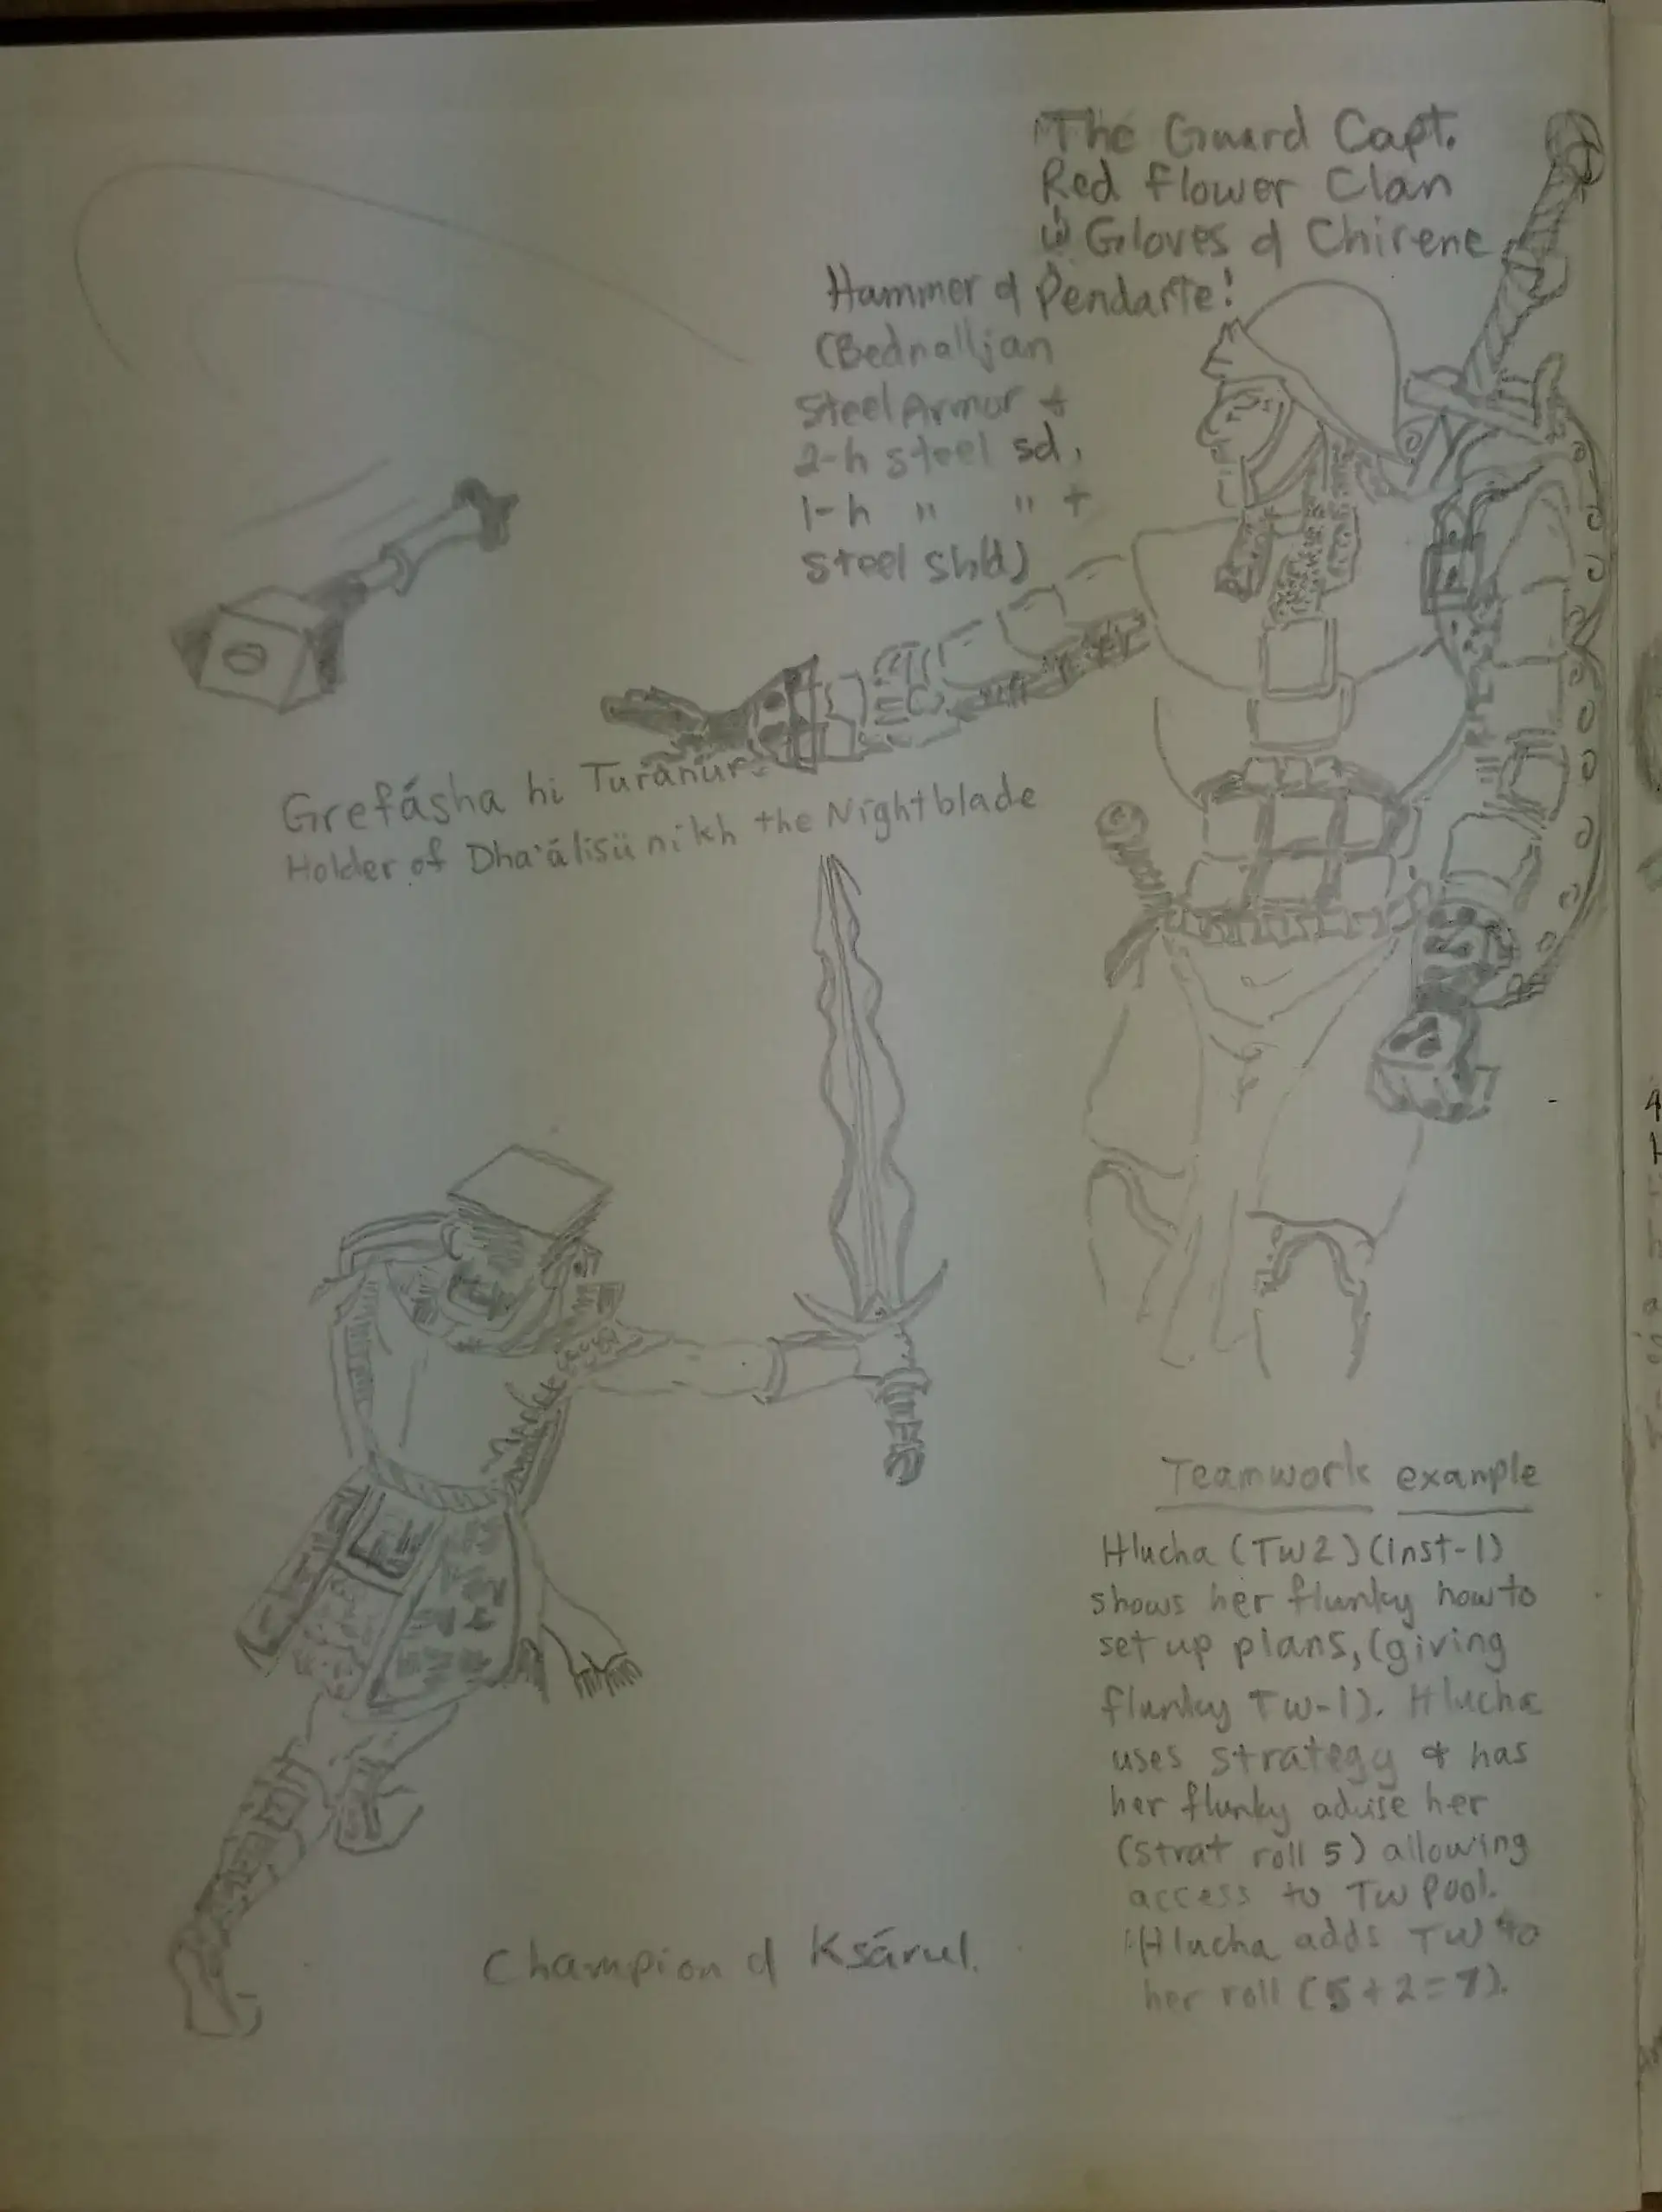 The Guard Capt.
Red Flower Clan
w̄ Gloves of Chirene
Hammer of Pendarte!
(Bednalljan
Steel Armor +
2-h steel sd,
1-h " " +
steel shld)
Grefásha hi Turánur
Holder of Dha'álisü nikh the Nightblade
Champion of Ksárul.
Teamwork example
Hlucha (TW2) (inst-1)
shows her flunky how to
set up plans, (giving
flunky TW-1). Hlucha
uses strategy & has
her flunky advise her
(strat roll 5) allowing
access to TW pool.
Hlucha adds TW to
her roll (5+2=7).